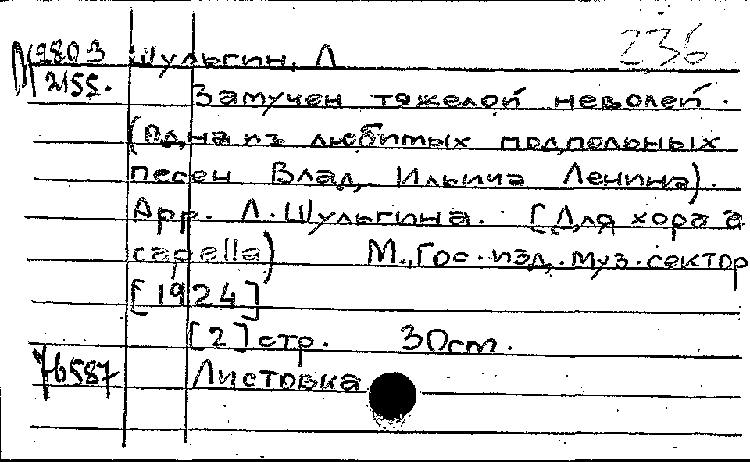 236
9803 Шульгин, Л
2155. Замучен тяжелой неволей.
(Одна из любимых подпольных
песен Влад. Ильича Ленина).
Арр. Л. Шульгина. [Для хора a
capella) М., Гос. изд. муз. сектор
[1924]
[2] стр. 30 cm.
76587 Листовка